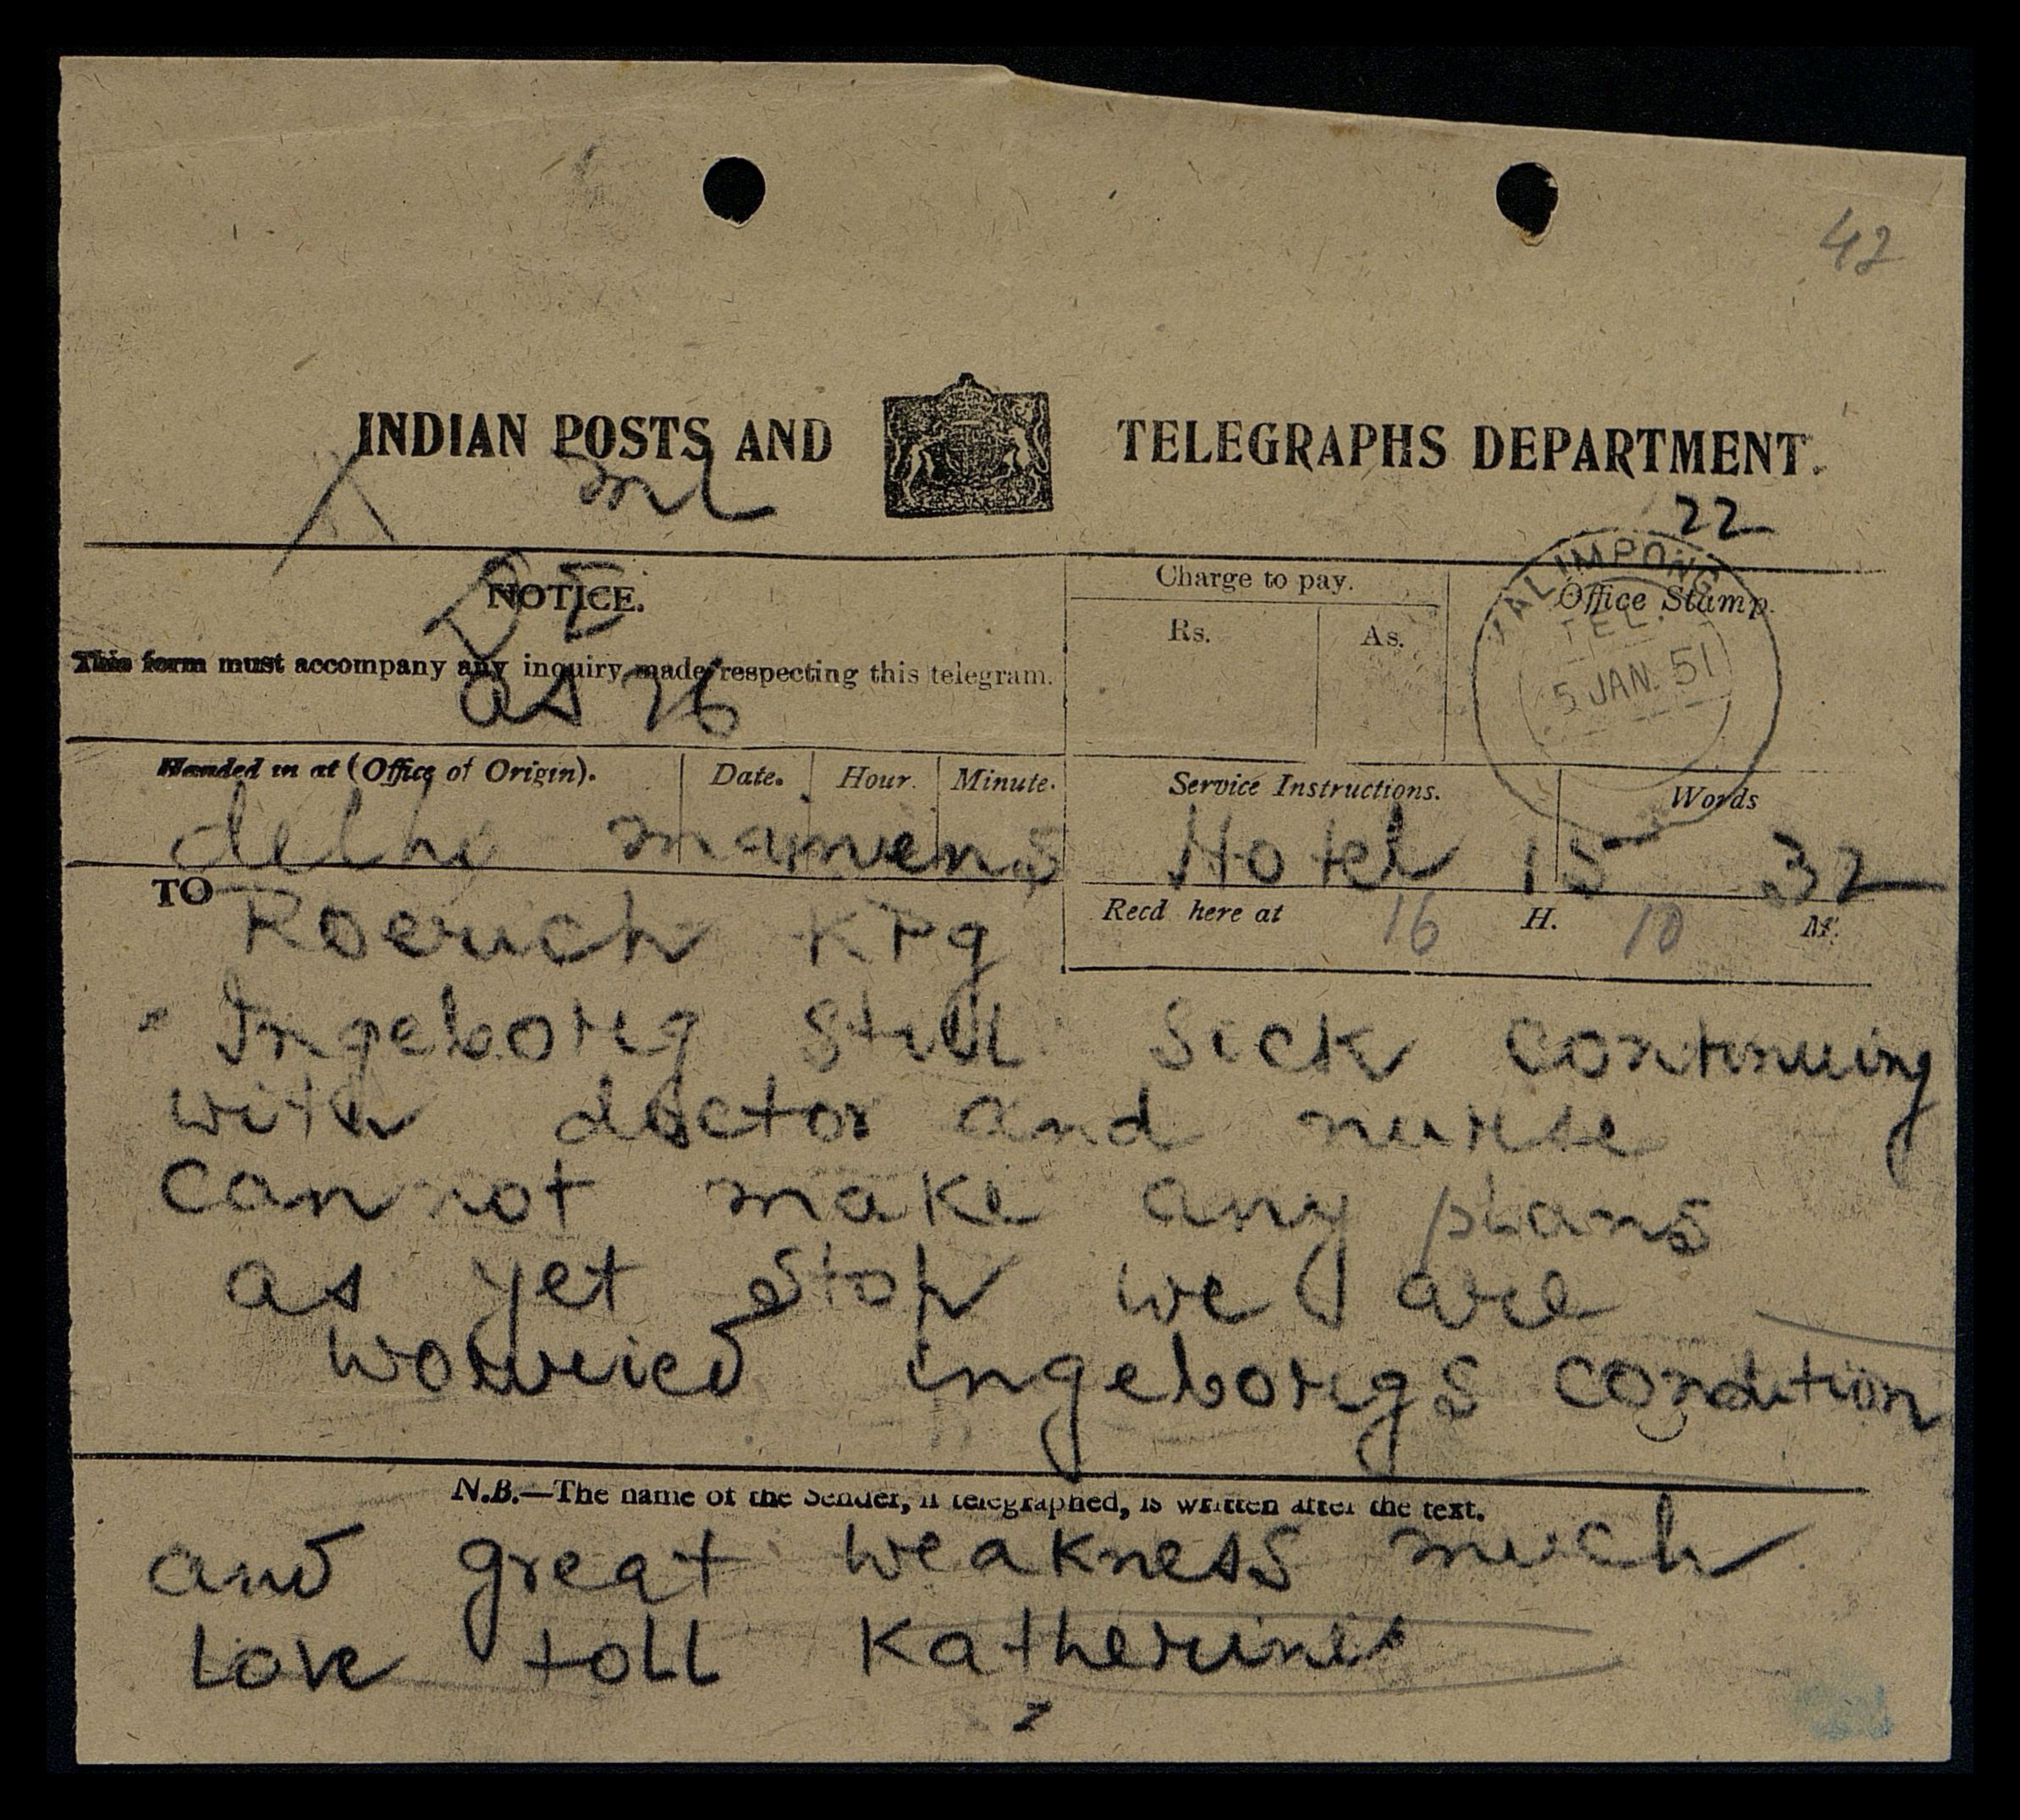 42
INDIAN POSTS AND TELEGRAPHS DEPARTMENT.
22
NOTICE.
This form must accompany any inquiry made respecting this telegram.
as 26
Charge to pay.
Rs. As.
Office Stamp.
KALIMPONG
TEL.
5 JAN. 51
Handed in at (Office of Origin). Date. Hour. Minute. Service Instructions. Words
delhi Hotel 15 32
TO Roerich KPg
Recd here at 16 H. 10 M.
Ingeborg still sick continuing
with doctor and nurse
cannot make any plans
as yet stop we are
worried ingeborgs condition
N.B.—The name of the Sender, if telegraphed, is written after the text.
and great weakness much
love toll Katherine